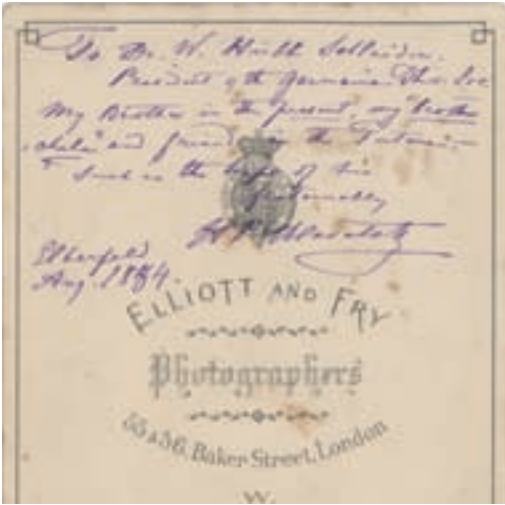 To Dr. W. Hübbe Schleiden.
President of the Germania Theo. Soc
My Brother in the present, my brother
"chela" and friend in the future —
Such is the hope of his
fraternally
H P Blavatsky
Elberfeld
Aug. 1884.
ELLIOTT AND FRY
Photographers
55 & 56, Baker Street, London
W.